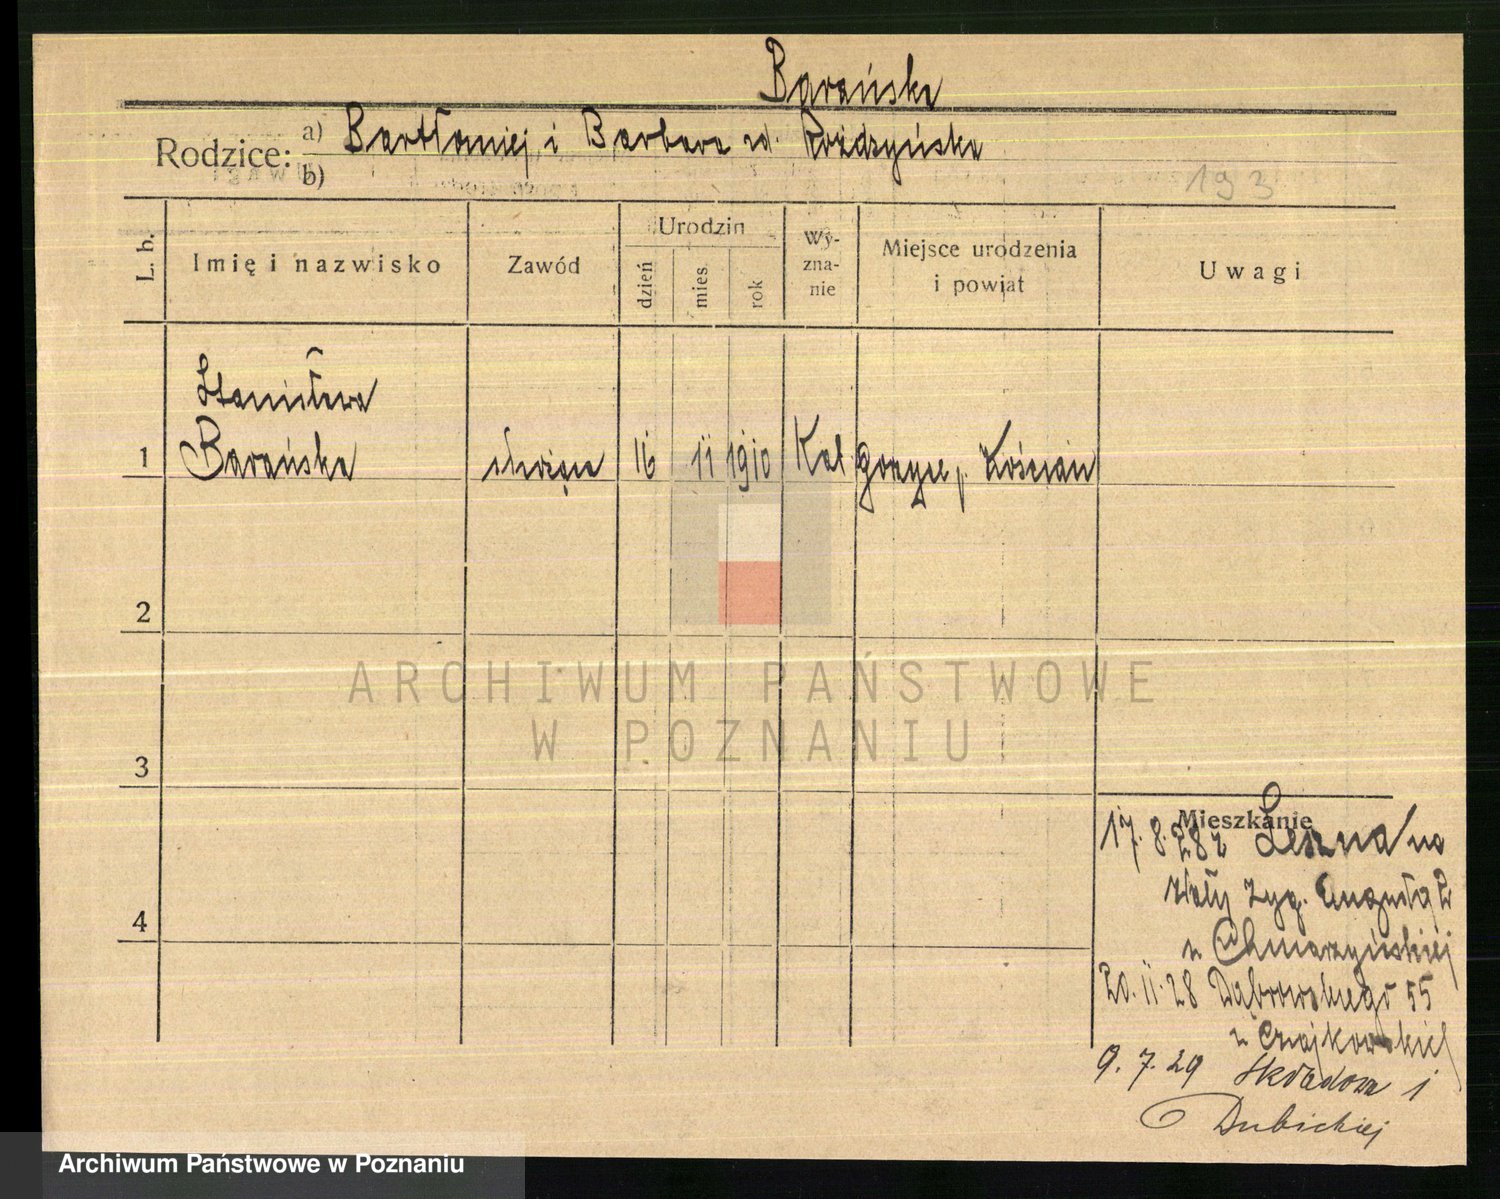 Barańska
Rodzice: a) Bartłomiej i Barbara zd. Roźdzyńska
b)
193
L. b.
Imię i nazwisko
Zawód
Urodzin
dzień
mies.
rok
Wy-
zna-
nie
Miejsce urodzenia
i powiat
Uwagi
Stanisława
1 Barańska służąca 16 11 1910 Kat Gorzyce, p. Kościan
2
3
4
Mieszkanie
17.8.28 z Leszna na
stały Zyg. Augusta 2
u Chmarzyńskiej
20.11.28 Dąbrowskiego 55
u Czajkowskiej
9.7.29 Składowa 1
Dubickiej
ARCHIWUM PAŃSTWOWE
W POZNANIU
Archiwum Państwowe w Poznaniu